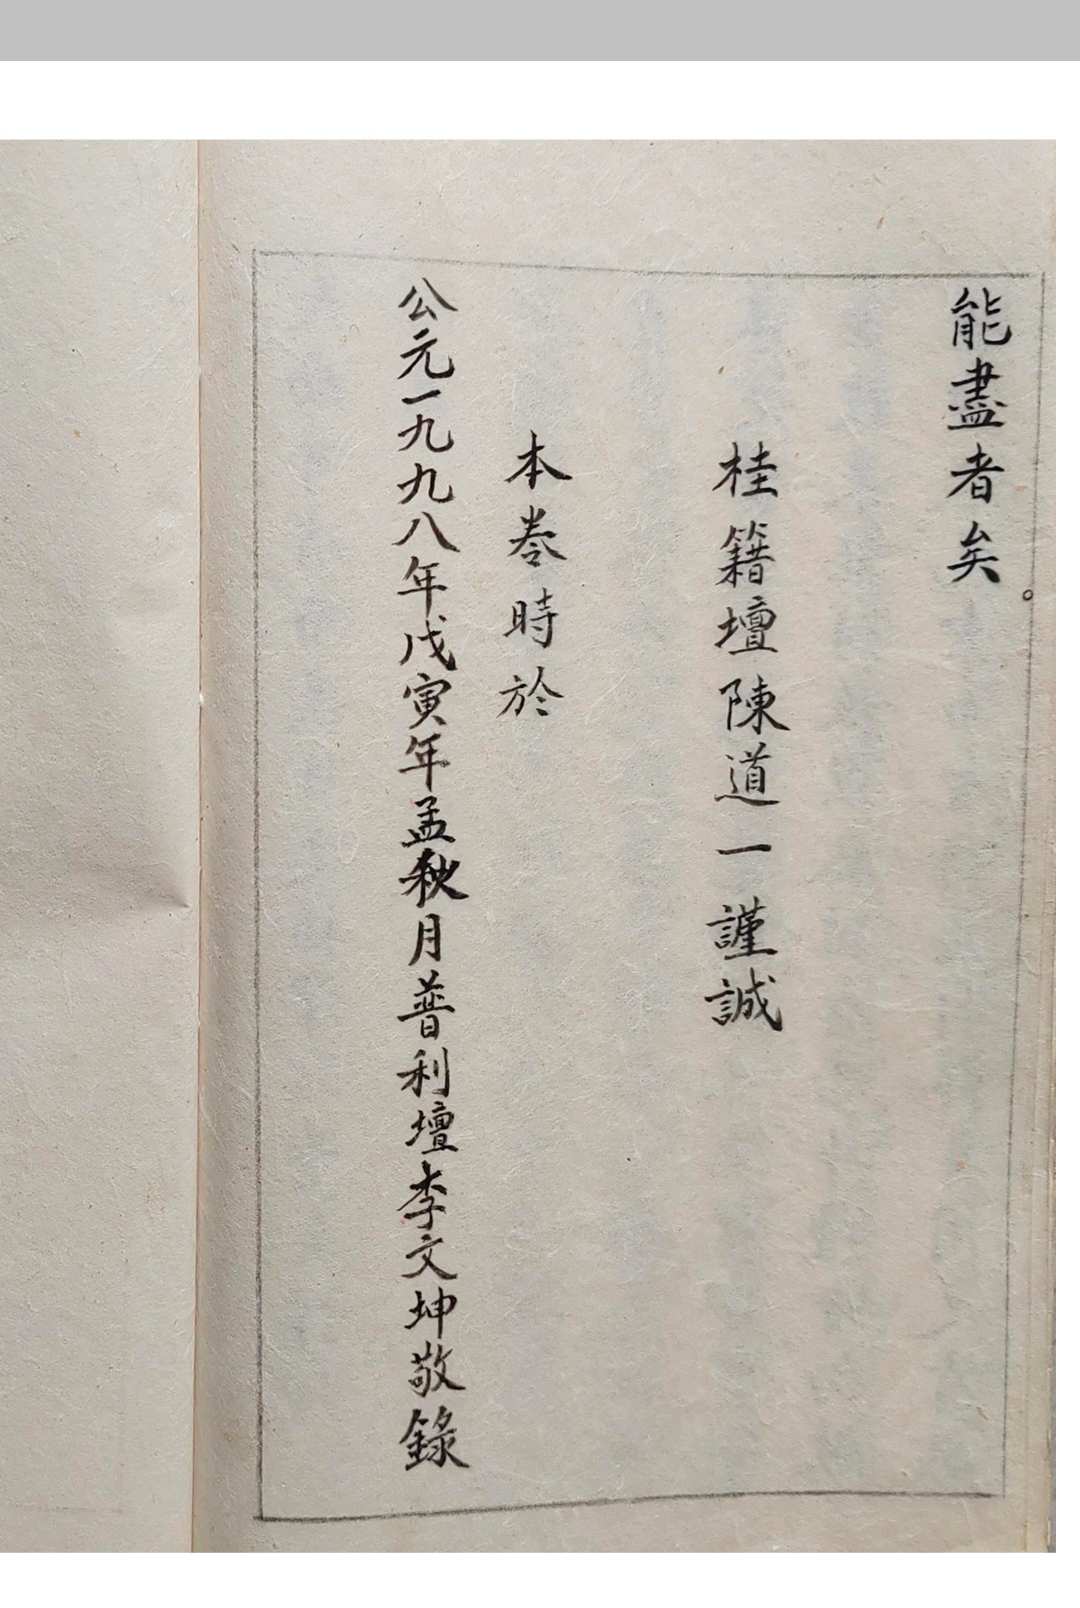 能盡者矣。
桂籍壇陳道一謹誠
本卷時於
公元一九九八年戊寅年孟秋月普利壇李文坤敬錄